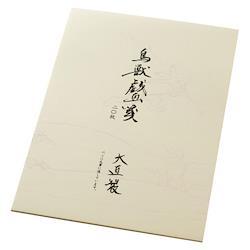 鳥獣戯箋
二〇枚
大直製